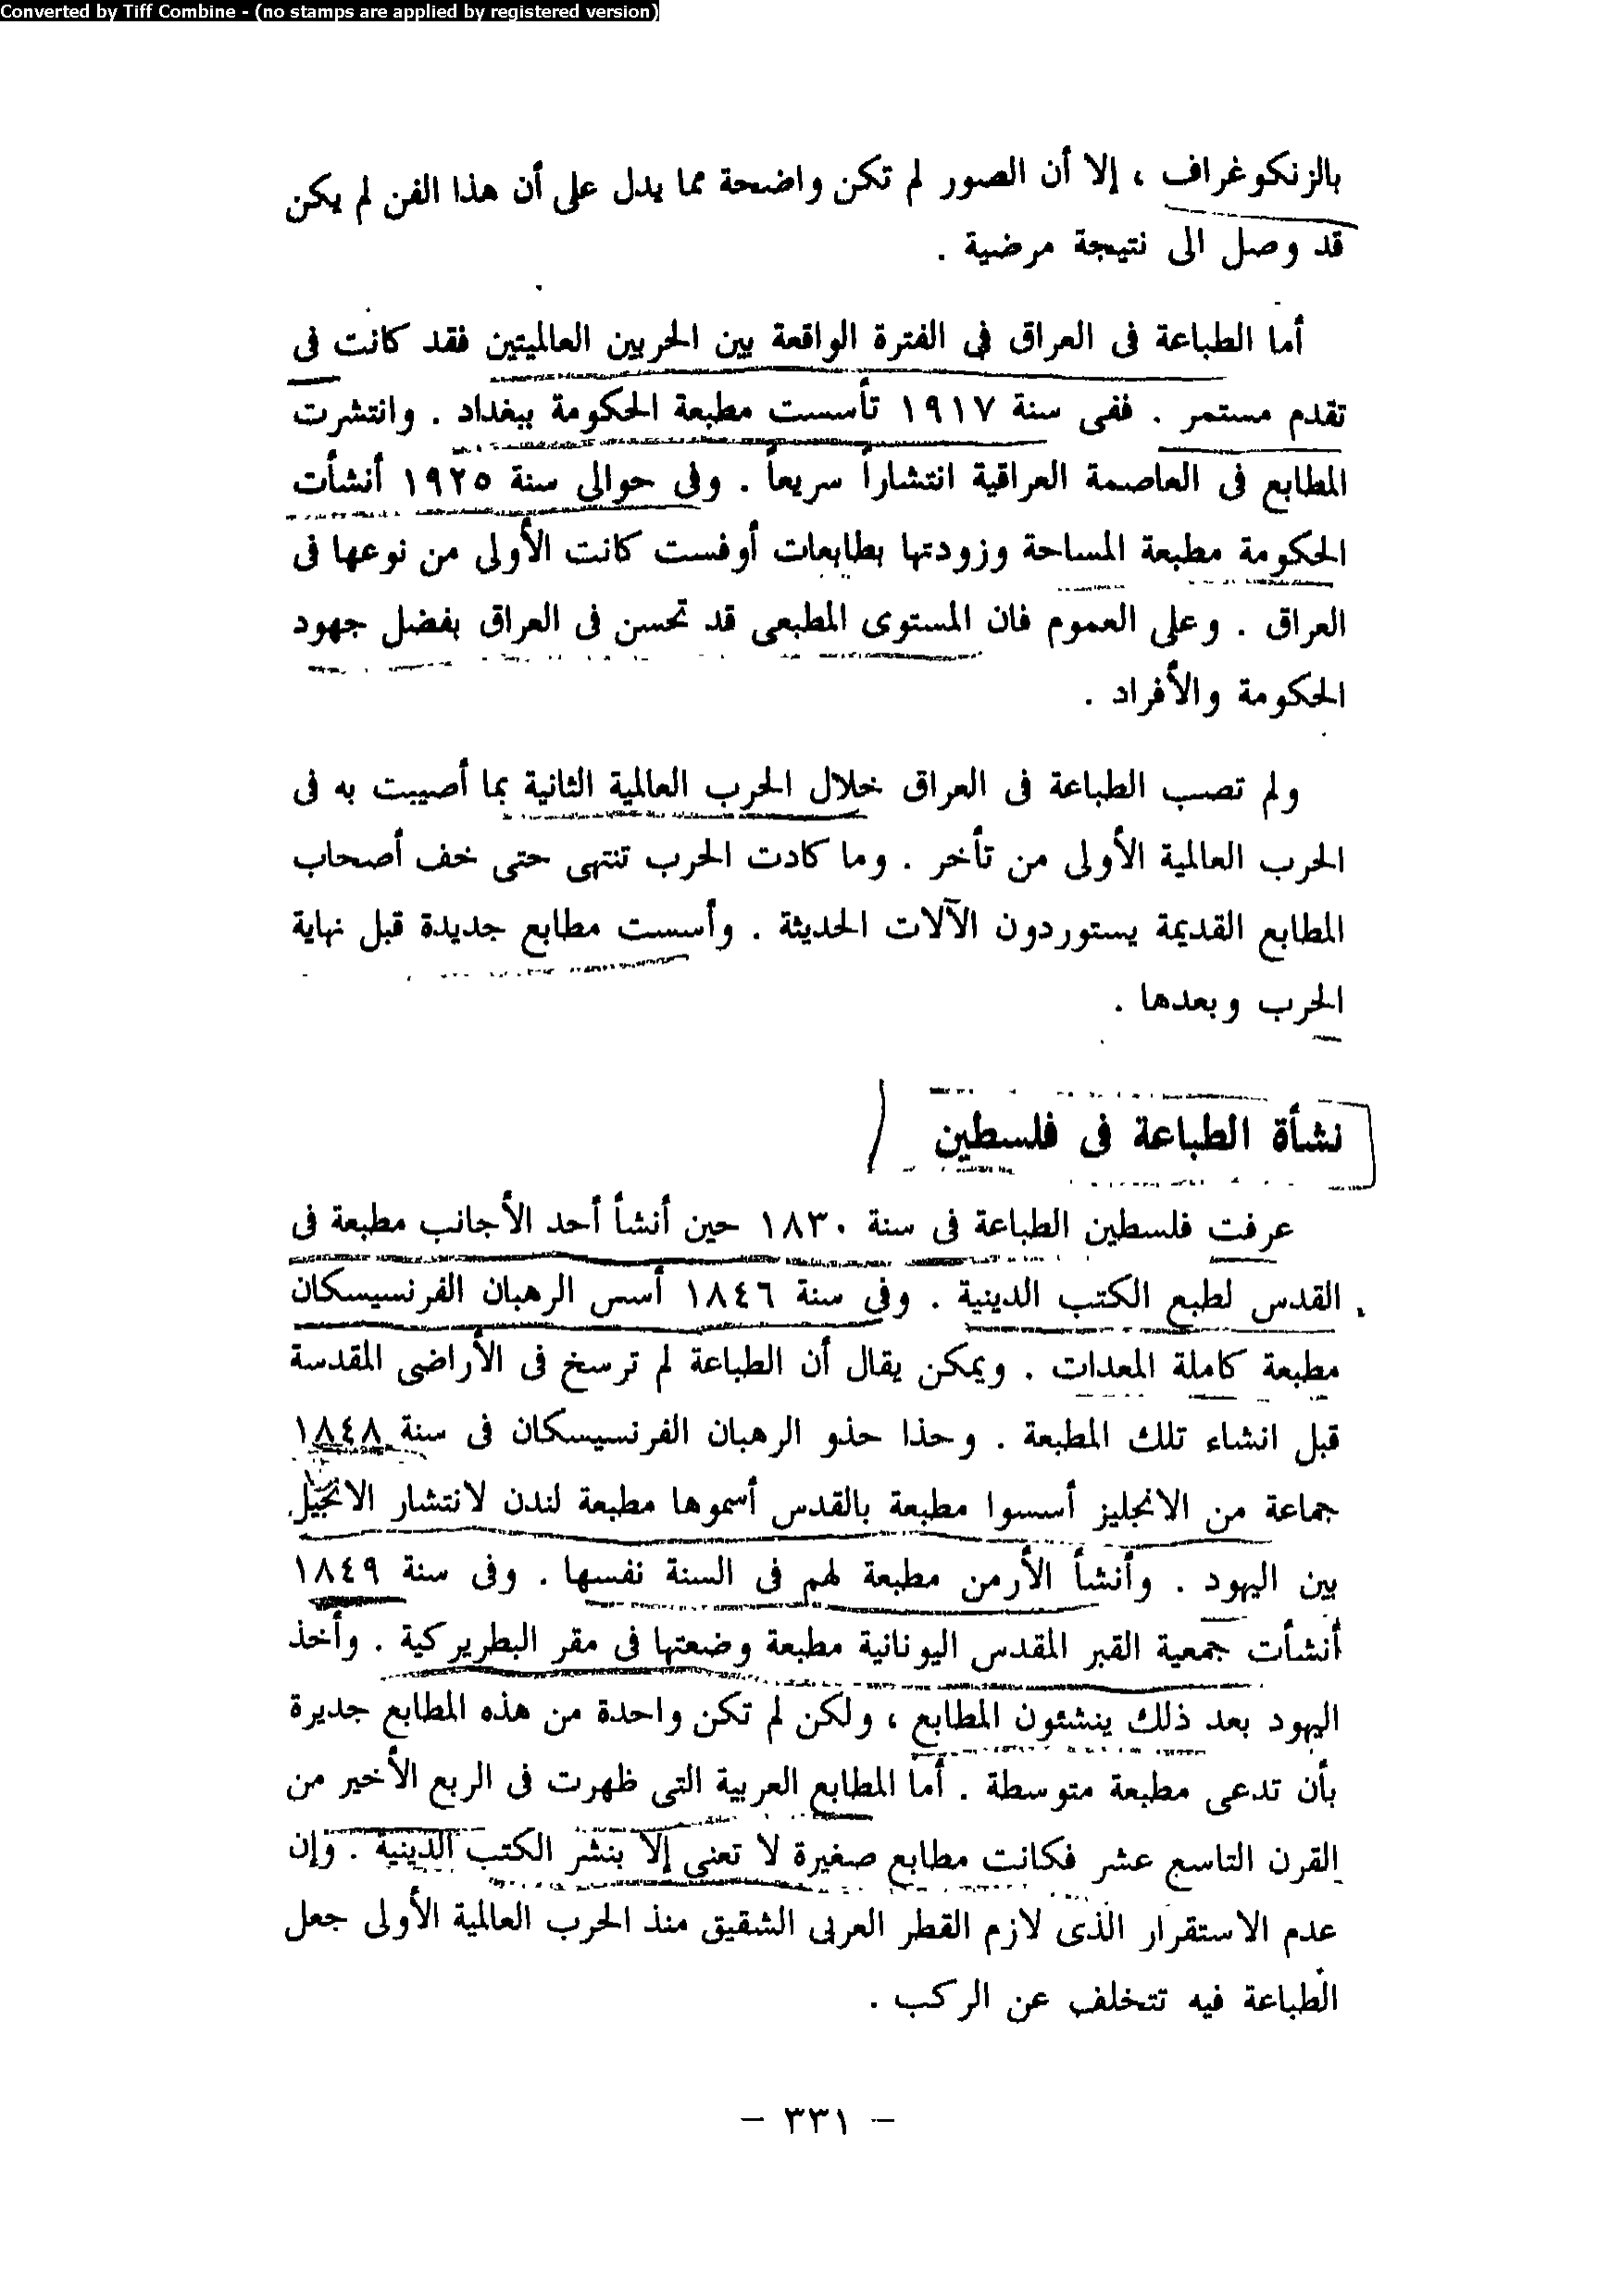 Converted by Tiff Combine - (no stamps are applied by registered version)
بالزنكوغراف ، إلا أن الصور لم تكن واضحة مما يدل على أن هذا الفن لم يكن
قد وصل الى نتيجة مرضية .
أما الطباعة فى العراق فى الفترة الواقعة بين الحربين العالميتين فقد كانت فى
تقدم مستمر . ففى سنة ١٩١٧ تأسست مطبعة الحكومة ببغداد . وانتشرت
المطابع فى العاصمة العراقية انتشاراً سريعاً . وفى حوالى سنة ١٩٢٥ أنشأت
الحكومة مطبعة المساحة وزودتها بطابعات أوفست كانت الأولى من نوعها فى
العراق . وعلى العموم فان المستوى المطبعى قد تحسن فى العراق بفضل جهود
الحكومة والأفراد .
ولم تصب الطباعة فى العراق خلال الحرب العالمية الثانية بما أصيبت به فى
الحرب العالمية الأولى من تأخر . وما كادت الحرب تنتهى حتى خف أصحاب
المطابع القديمة يستوردون الآلات الحديثة . وأسست مطابع جديدة قبل نهاية
الحرب وبعدها .
نشأة الطباعة فى فلسطين
عرفت فلسطين الطباعة فى سنة ١٨٣٠ حين أنشأ أحد الأجانب مطبعة فى
القدس لطبع الكتب الدينية . وفى سنة ١٨٤٦ أسس الرهبان الفرنسيسكان
مطبعة كاملة المعدات . ويمكن يقال أن الطباعة لم ترسخ فى الأراضى المقدسة
قبل انشاء تلك المطبعة . وحذا حذو الرهبان الفرنسيسكان فى سنة ١٨٤٨
جماعة من الانجليز أسسوا مطبعة بالقدس أسموها مطبعة لندن لانتشار الانجيل
بين اليهود . وأنشأ الأرمن مطبعة لهم فى السنة نفسها . وفى سنة ١٨٤٩
أنشأت جمعية القبر المقدس اليونانية مطبعة وضعتها فى مقر البطريركية . وأخذ
اليهود بعد ذلك ينشئون المطابع ، ولكن لم تكن واحدة من هذه المطابع جديرة
بأن تدعى مطبعة متوسطة . أما المطابع العربية التى ظهرت فى الربع الأخير من
القرن التاسع عشر فكانت مطابع صغيرة لا تعنى إلا بنشر الكتب الدينية . وإن
عدم الاستقرار الذى لازم القطر العربى الشقيق منذ الحرب العالمية الأولى جعل
الطباعة فيه تتخلف عن الركب .
– ٣٣١ –